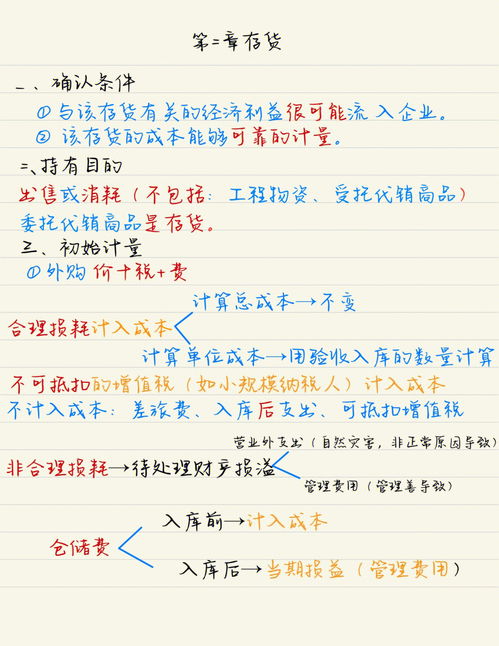 第二章存货
一、确认条件
①与该存货有关的经济利益很可能流入企业。
②该存货的成本能够可靠的计量。
二、持有目的
出售或消耗(不包括:工程物资、受托代销商品)
委托代销商品是存货。
三、初始计量
①外购 价+税+费
计算总成本→不变
合理损耗计入成本
计算单位成本→用验收入库的数量计算
不可抵扣的增值税(如小规模纳税人)计入成本
不计入成本:差旅费、入库后支出、可抵扣增值税
营业外支出(自然灾害,非正常原因导致)
非合理损耗→待处理财产损溢
管理费用(管理善导致)
入库前→计入成本
仓储费
入库后→当期损益(管理费用)